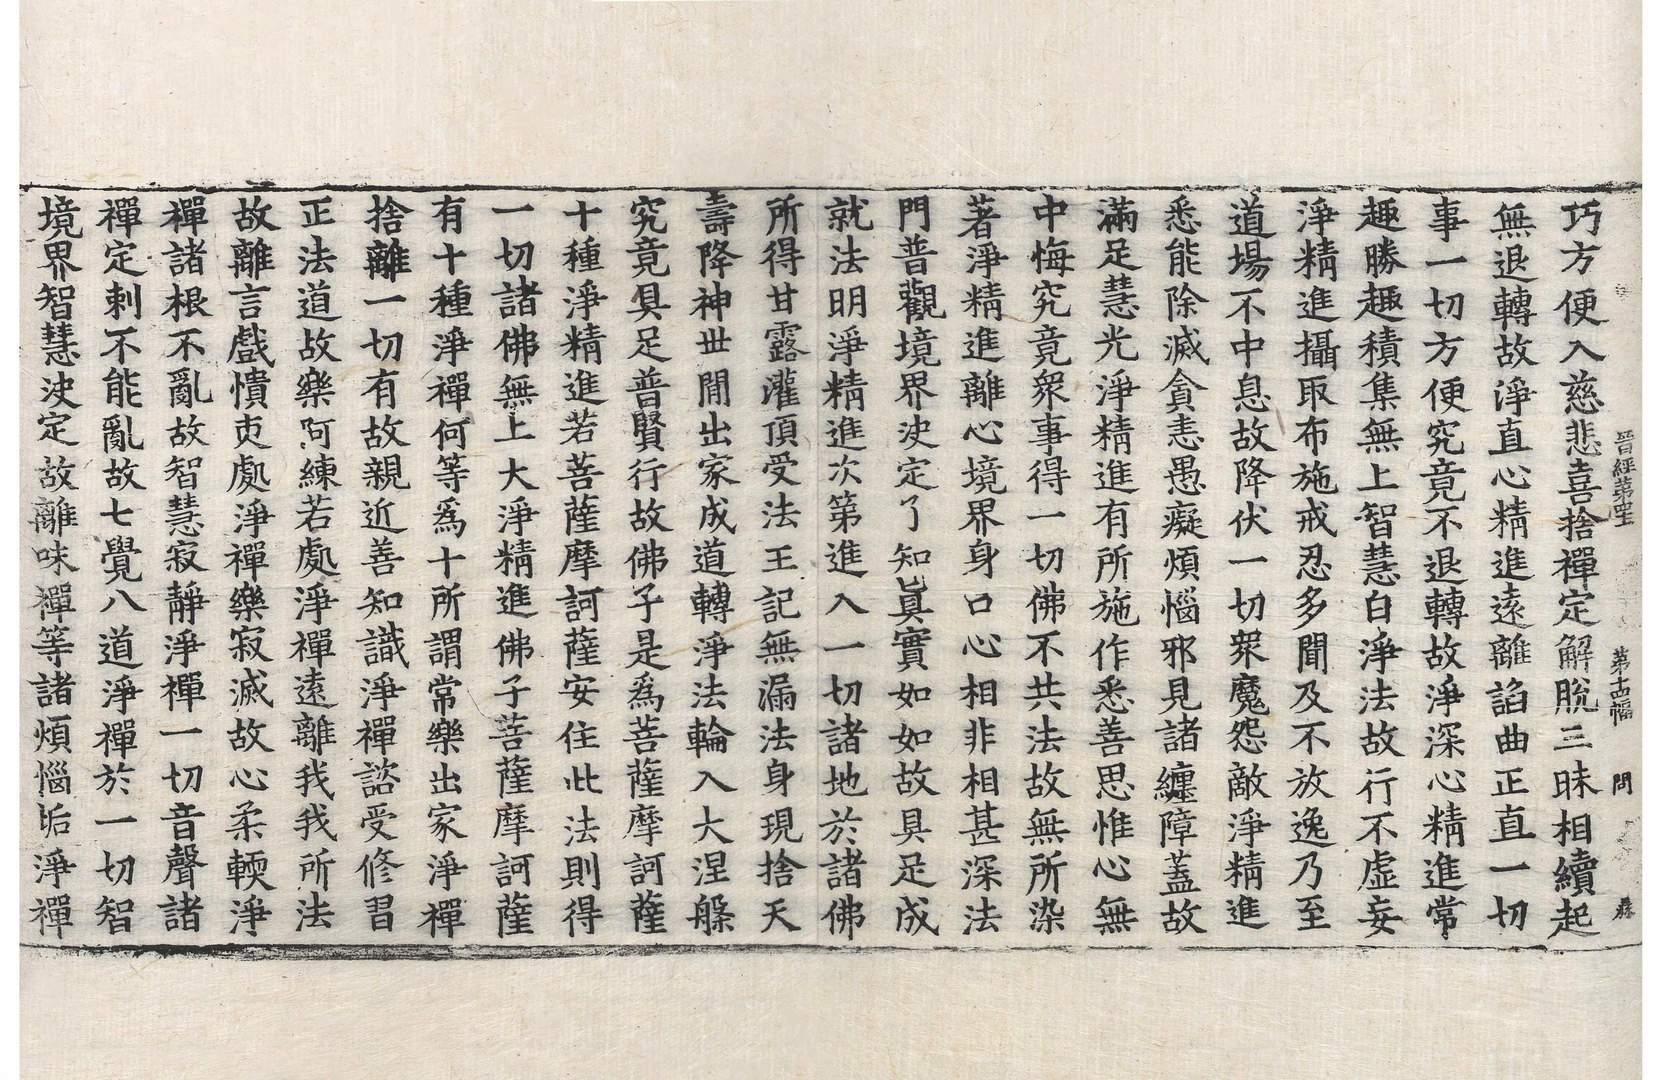 晉經第四十一 第十四幅 問
巧方便入慈悲喜捨禪定解脫三昧相續起
無退轉故淨直心精進遠離諂曲正直一切
事一切方便究竟不退轉故淨深心精進常
趣勝趣積集無上智慧白淨法故行不虛妄
淨精進攝取布施戒忍多聞及不放逸乃至
道場不中息故降伏一切眾魔怨敵淨精進
悉能除滅貪恚愚癡煩惱邪見諸纏障蓋故
滿足慧光淨精進有所施作悉善思惟心無
中悔究竟眾事得一切佛不共法故無所染
著淨精進離心境界身口心相非相甚深法
門普觀境界決定了知真實如如故具足成
就法明淨精進次第進入一切諸地於諸佛
所得甘露灌頂受法王記無漏法身現捨天
壽降神世間出家成道轉淨法輪入大涅槃
究竟具足普賢行故佛子是為菩薩摩訶薩
十種淨精進若菩薩摩訶薩安住此法則得
一切諸佛無上大淨精進佛子菩薩摩訶薩
有十種淨禪何等為十所謂常樂出家淨禪
捨離一切有故親近善知識淨禪諮受修習
正法道故樂阿練若處淨禪遠離我我所法
故離言戲憒吏處淨禪樂寂滅故心柔輭淨
禪諸根不亂故智慧寂靜淨禪一切音聲諸
禪定刺不能亂故七覺八道淨禪於一切智
境界智慧決定故離味禪等諸煩惱垢淨禪